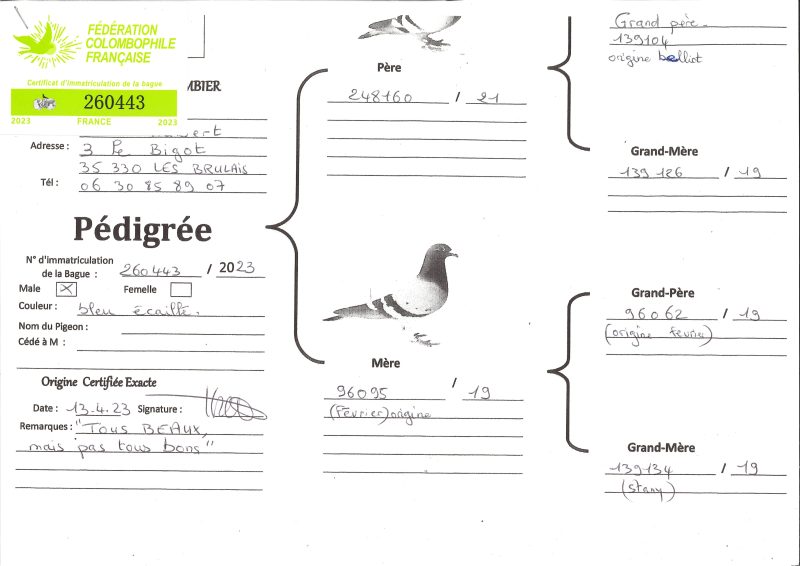 FÉDÉRATION
COLOMBOPHILE
FRANÇAISE
Certificat d'immatriculation de la bague
260443
2023 FRANCE 2023
MBIER
Adresse : 3 Le Bigot
35 330 LES BRULAIS
Tél : 06 30 85 89 07
Pédigrée
N° d'immatriculation
de la Bague : 260443 / 2023
Male X Femelle
Couleur : bleu écaillé.
Nom du Pigeon :
Cédé à M :
Origine Certifiée Exacte
Date : 13.4.23 Signature :
Remarques : "Tous BEAUX,
mais pas tous bons"
Père
248160 / 21
Mère
96095 / 19
(Février) origine
Grand père.
139104
origine belliot
Grand-Mère
139126 / 19
Grand-Père
96062 / 19
(origine fevrier)
Grand-Mère
139134 / 19
(Stany)